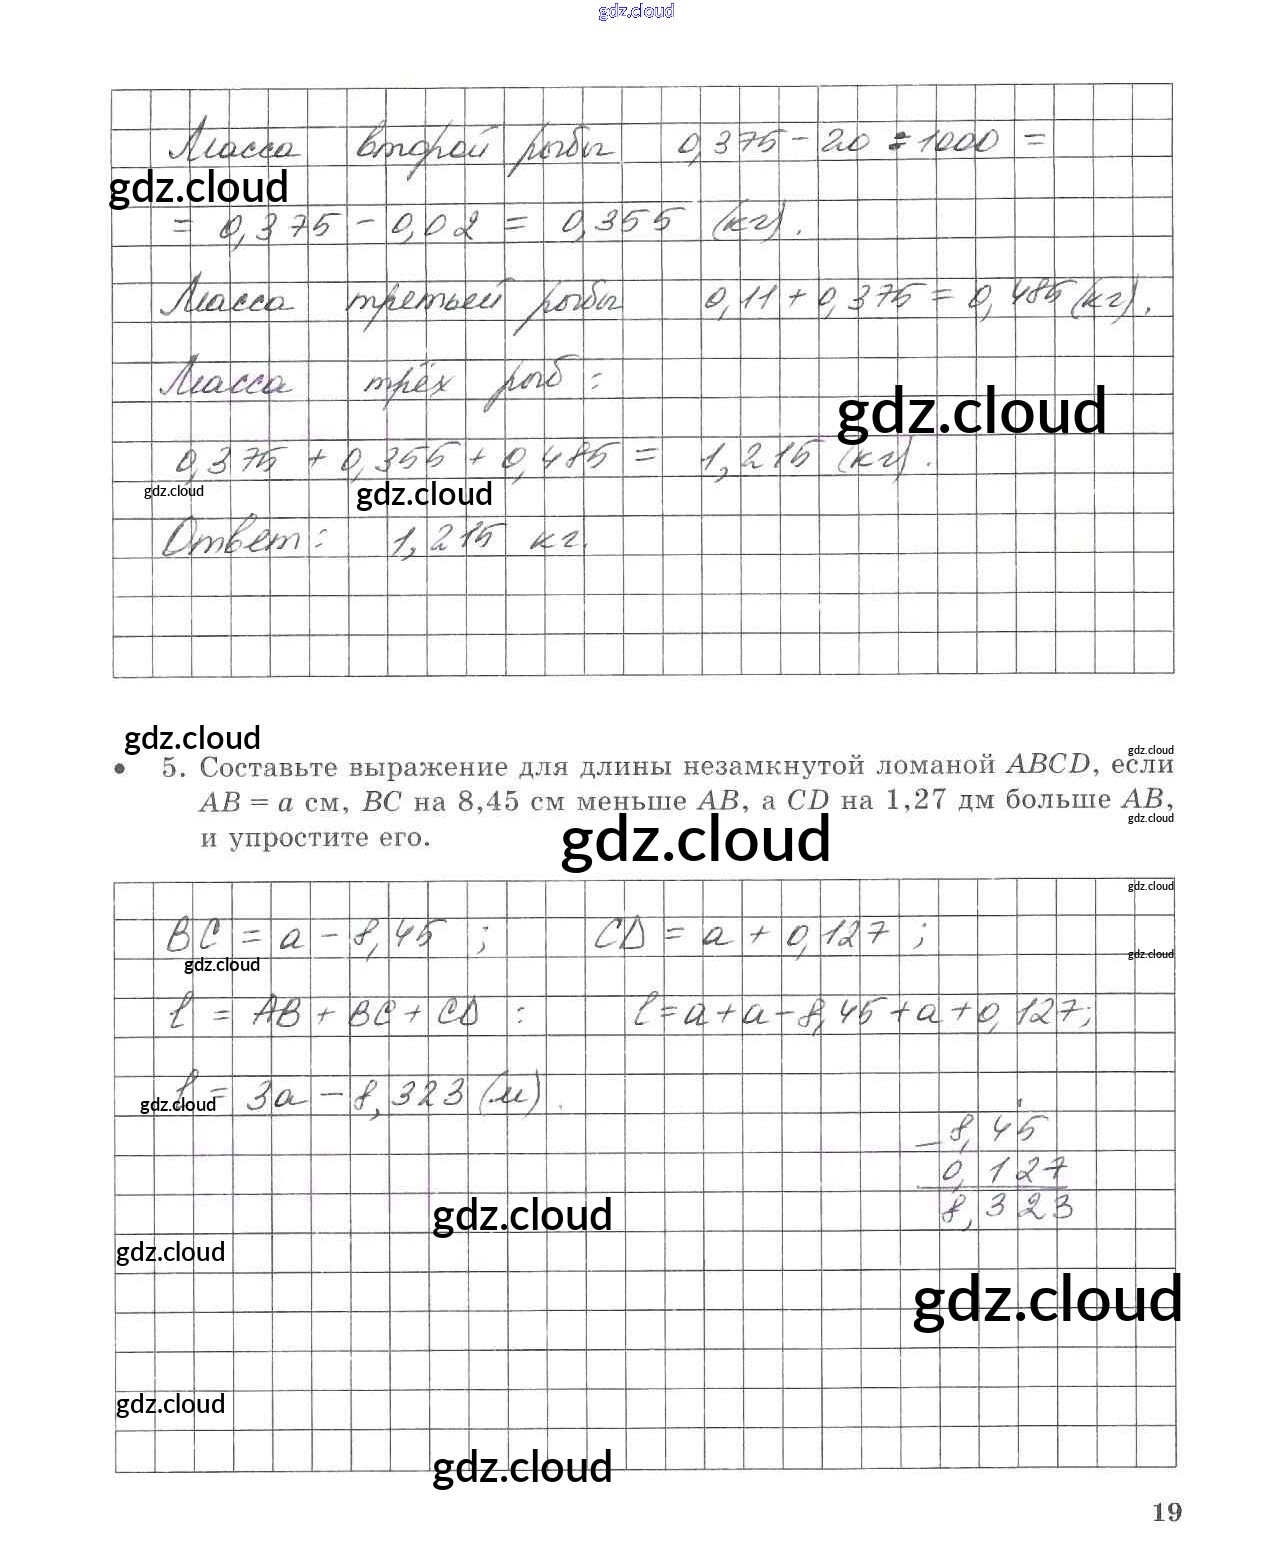 gdz.cloud
Масса второй рыбы 0,375 - 20 : 1000 =
gdz.cloud
= 0,375 - 0,02 = 0,355 (кг).
Масса третьей рыбы 0,11 + 0,375 = 0,485 (кг).
Масса трёх рыб:
gdz.cloud
0,375 + 0,355 + 0,485 = 1,215 (кг).
gdz.cloud gdz.cloud
Ответ: 1,215 кг.
gdz.cloud
gdz.cloud
• 5. Составьте выражение для длины незамкнутой ломаной ABCD, если
AB = a см, BC на 8,45 см меньше AB, а CD на 1,27 дм больше AB,
gdz.cloud
и упростите его.
gdz.cloud
gdz.cloud
BC = a - 8,45 ; CD = a + 0,127 ;
gdz.cloud
gdz.cloud
l = AB + BC + CD : l = a + a - 8,45 + a + 0,127;
l = 3a - 8,323 (м).
gdz.cloud
- 8,45
0,127
8,323
gdz.cloud
gdz.cloud
gdz.cloud
gdz.cloud
gdz.cloud
19